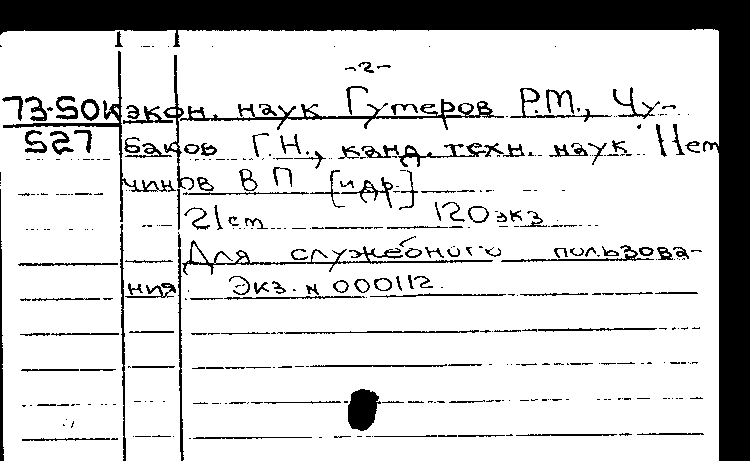 -2-
73-50к экон. наук Гутеров Р.М., Чу-
527 баков Г.Н., канд. техн. наук Пет
чинов В П [и др]
21 cm 120 экз.
Для служебного пользова-
ния. Экз. N 000112.